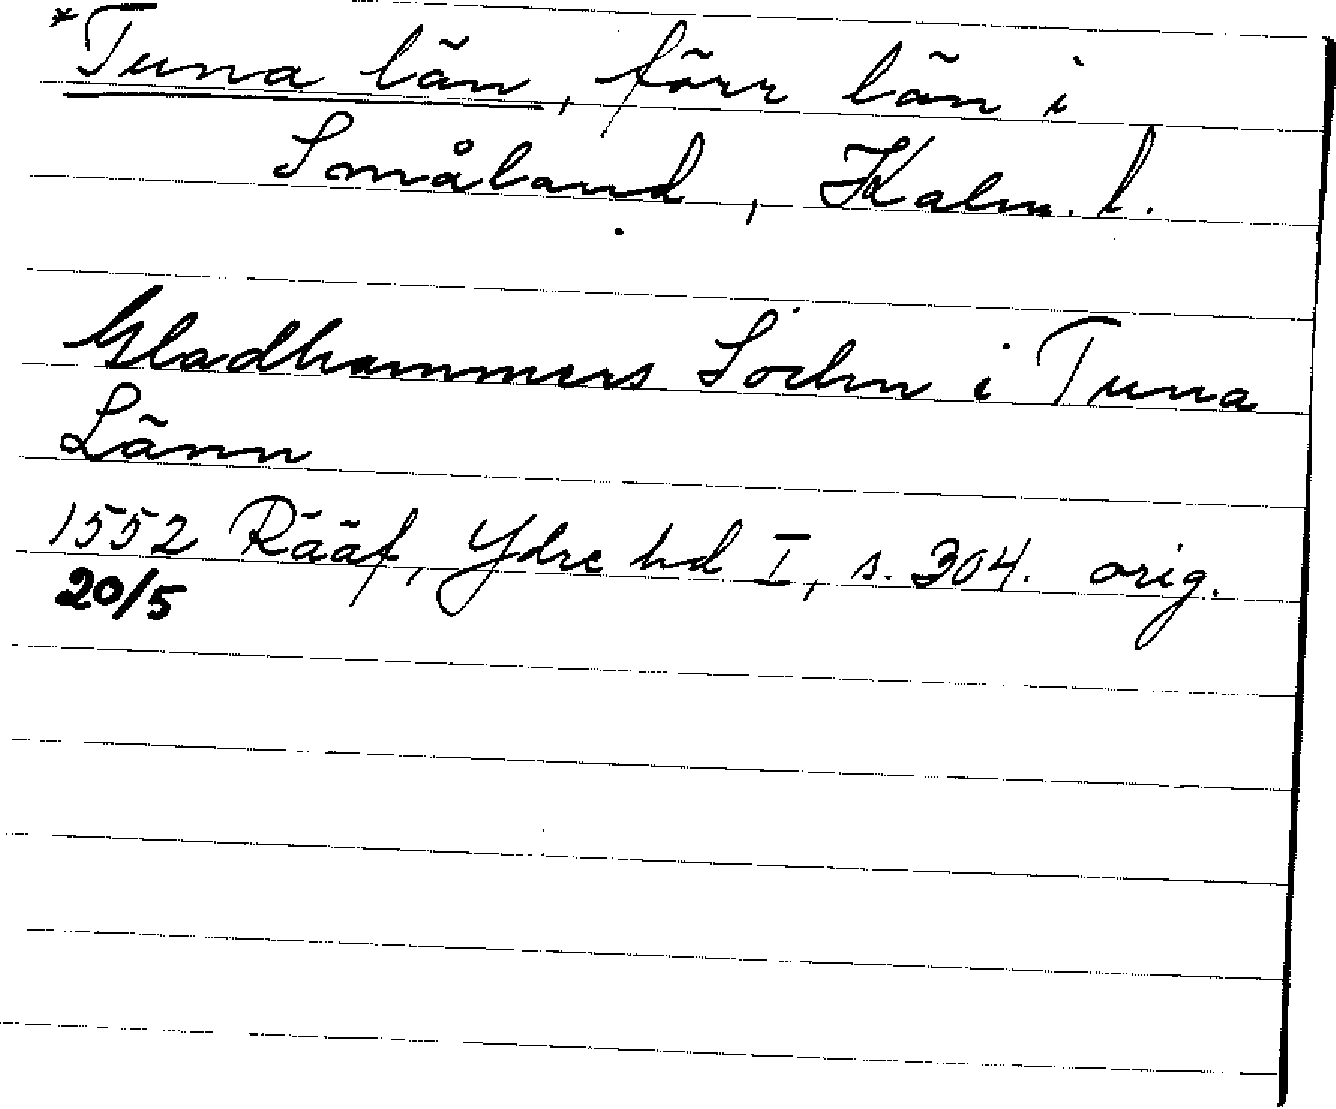 *Tuna län, förr län i
Småland, Kalm. l.
Gladhammers Sochn i Tuna
Länn
1552 Rääf, Ydre hd I, s. 304. orig.
20/5